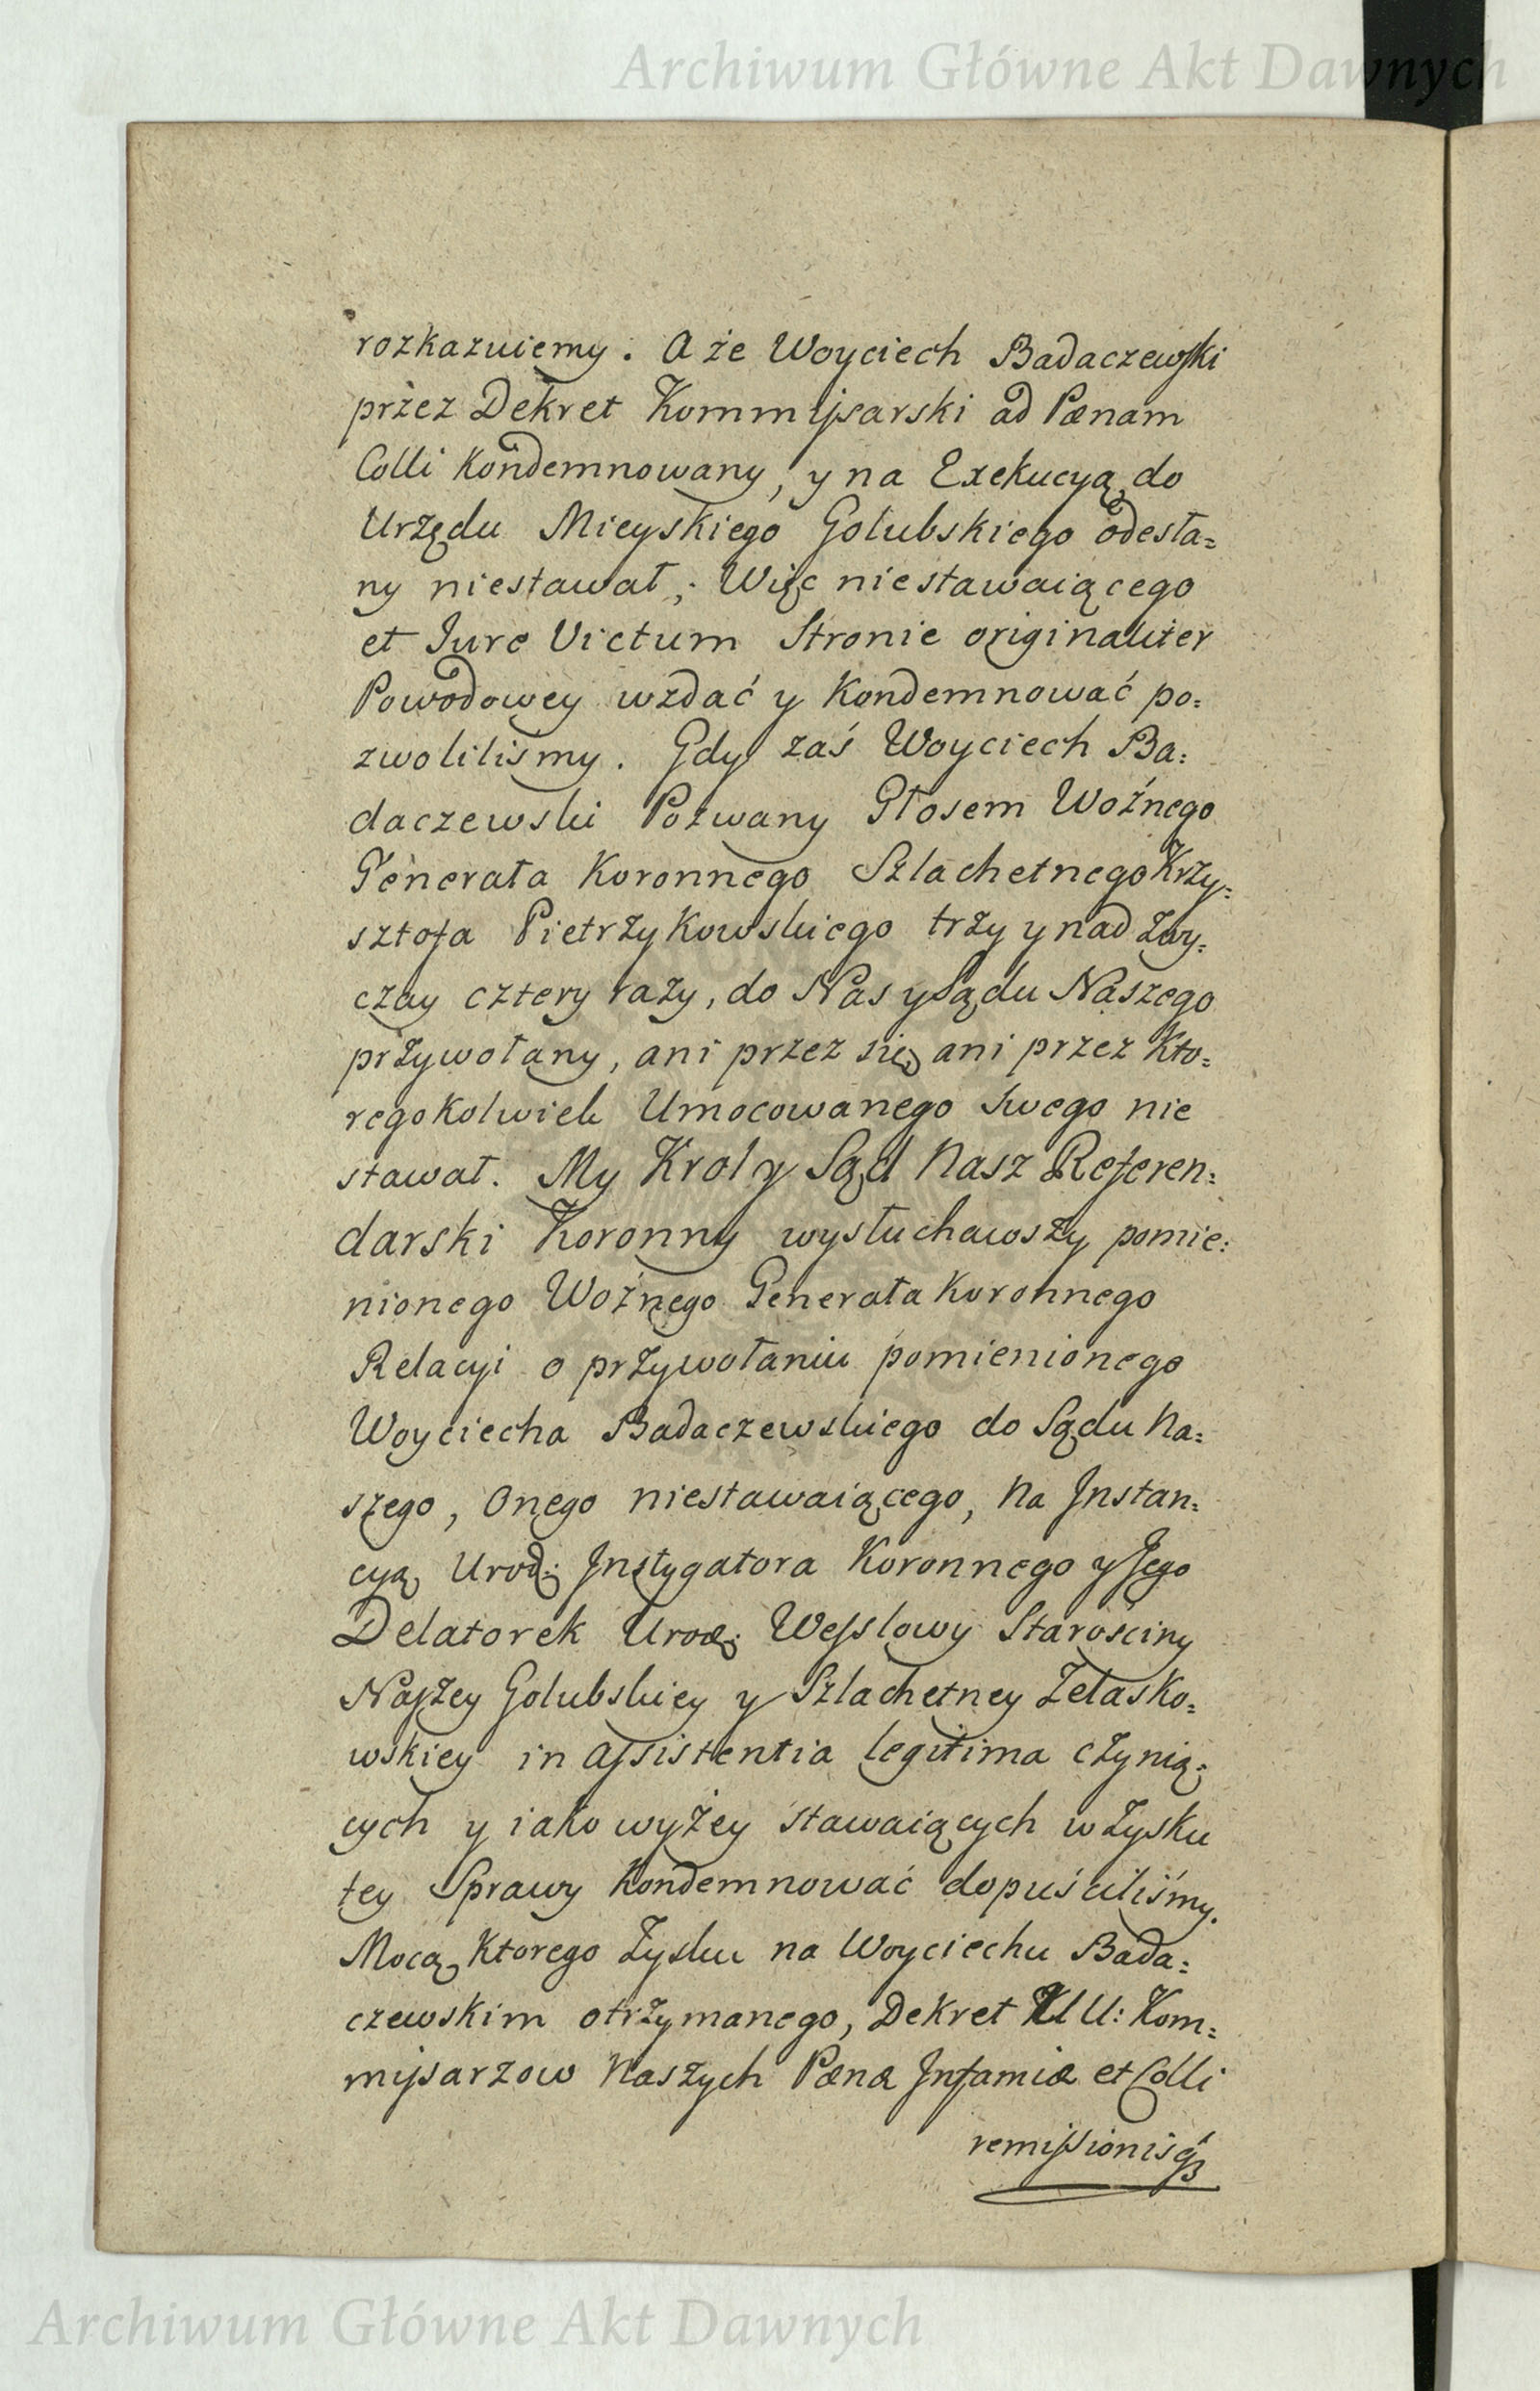 Archiwum Główne Akt Dawnych
rozkazuiemy. A że Woyciech Badaczewski
przez Dekret Kommissarski ad Pænam
Colli Kondemnowany, y na Exekucyą do
Urzędu Mieyskiego Golubskiego odesła=
ny niestawał; Więc niestawaiącego
et Jure Victum Stronie originaliter
Powodowey wzdać y Kondemnować po=
zwolilismy. Gdy zaś Woyciech Ba=
daczewski Pozwany Głosem Woźnego
Generała Koronnego Szlachetnego Krzy=
sztofa Pietrzykowskiego trzy y nad Zwy=
czay cztery razy, do Nas y Sądu Naszego
przywołany, ani przez się ani przez Kto=
regokolwiek Umocowanego swego nie
stawał. My Krol y Sąd Nasz Referen=
darski Koronny wysłuchawszy pomie=
nionego Woźnego Generała Koronnego
Relacyi o przywołaniu pomienionego
Woyciecha Badaczewskiego do Sądu Na=
szego, Onego niestawaiącego, Na Jnstan=
cyą Urod: Jnstygatora Koronnego y Jego
Delatorek Urod: Wesslowy Starościny
Naszey Golubskiey y Szlachetney Zelasko=
wskiey in assistentia legitima czynią=
cych y iako wyżey stawaiących w Zysku
tey Sprawy Kondemnować dopuściliśmy.
Mocą Ktorego Zysku na Woyciechu Bada=
czewskim otrzymanego, Dekret UU: Kom=
missarzow Naszych Pænæ Jnfamiæ et Colli
remissionisq3
Archiwum Główne Akt Dawnych